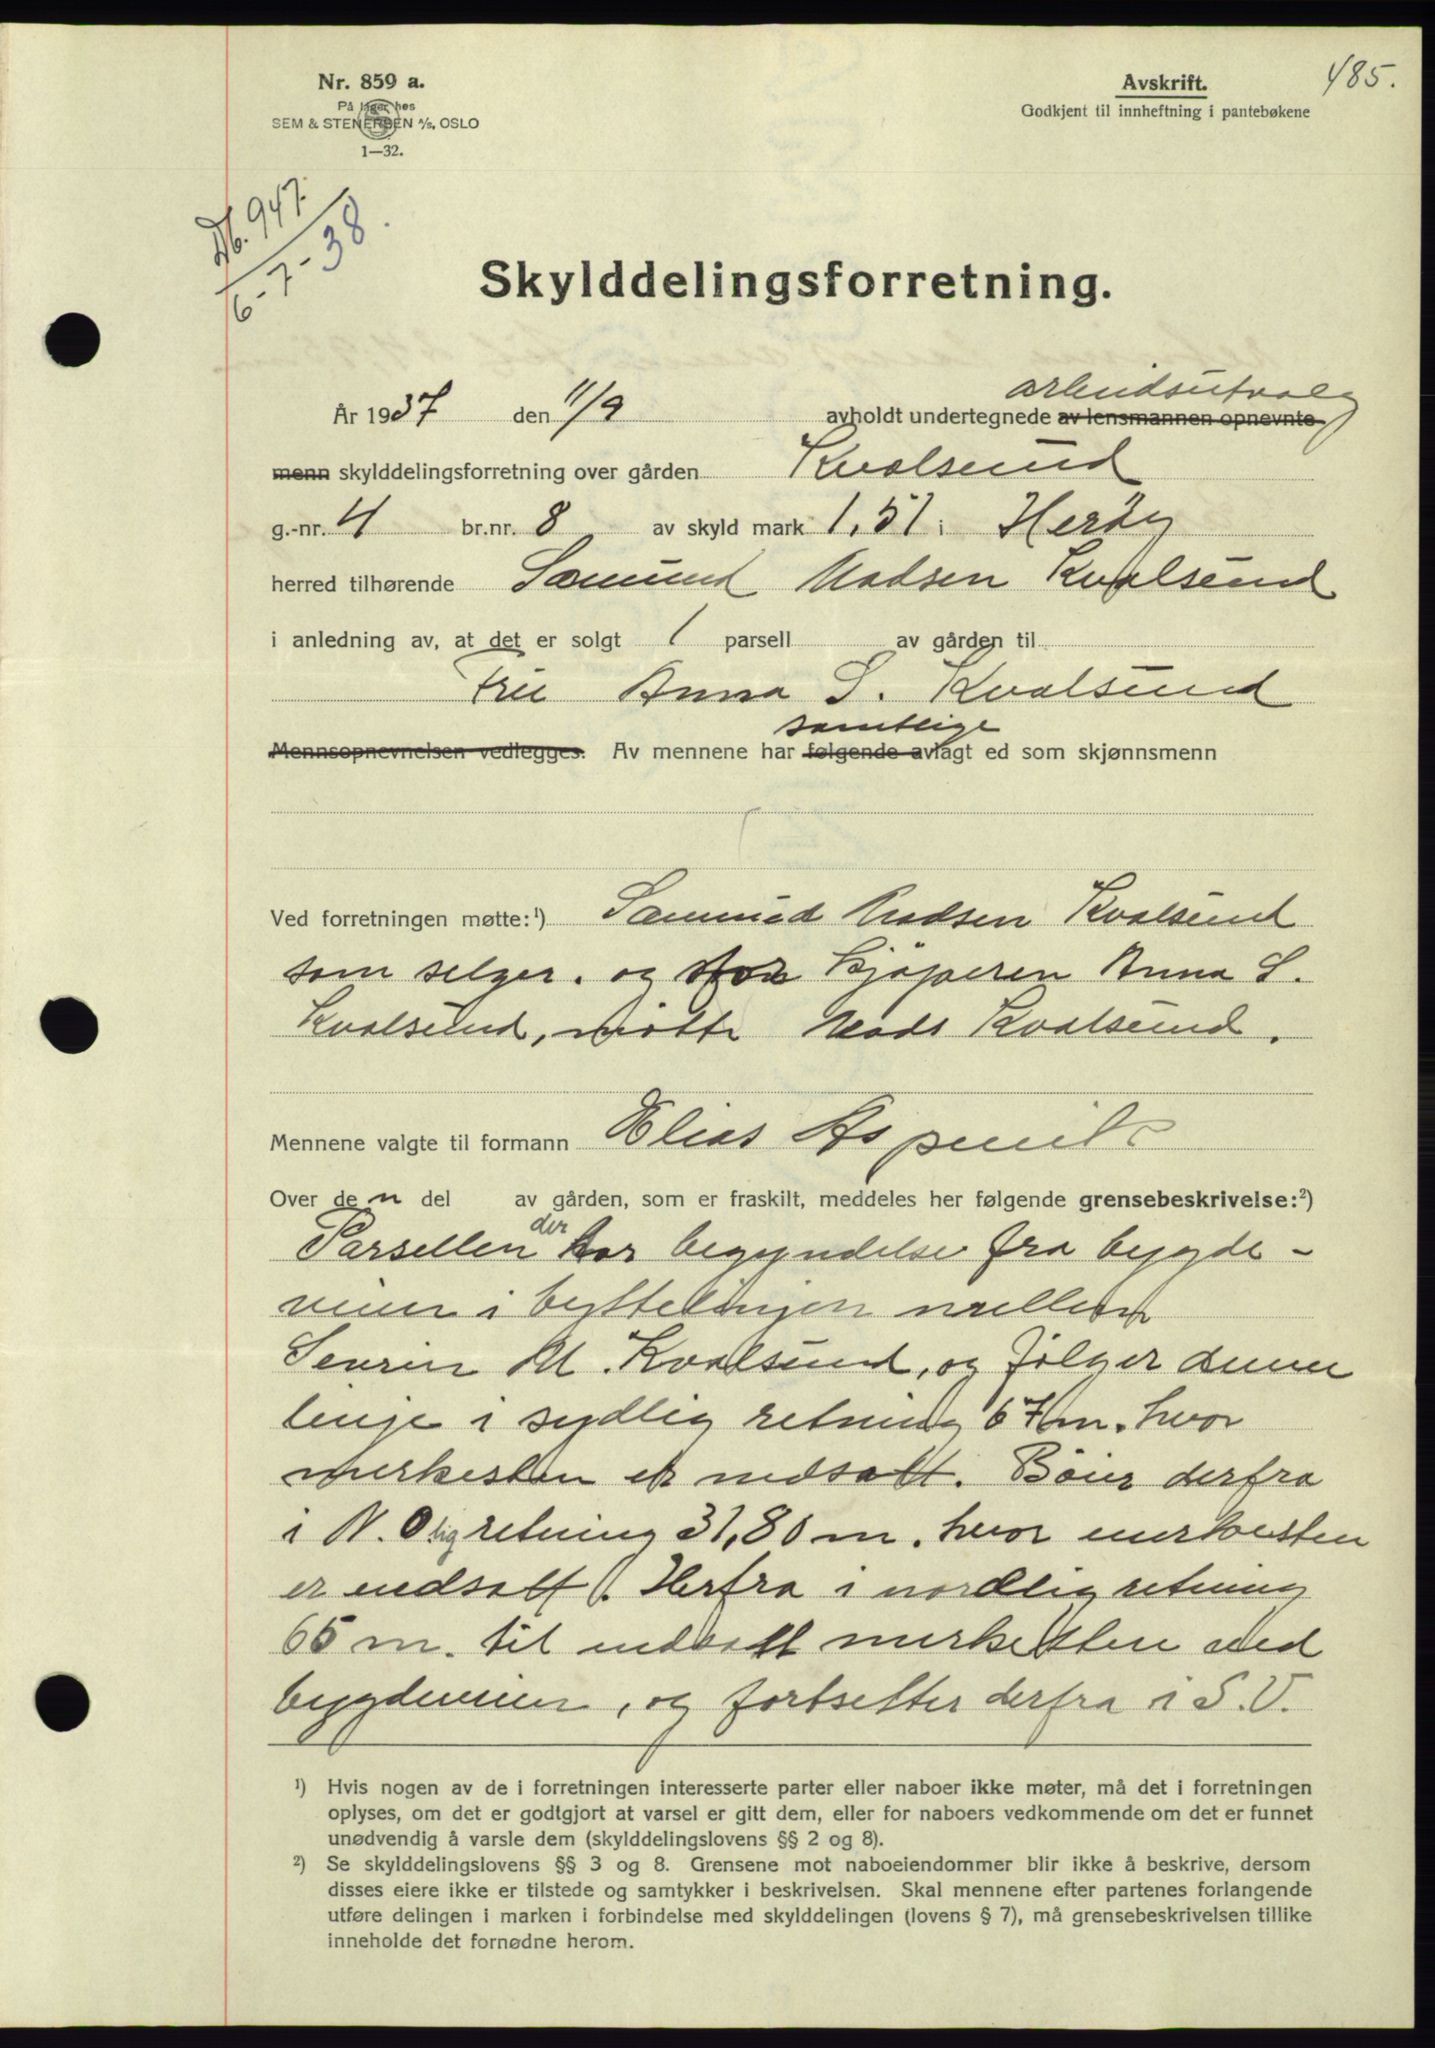 485.
Nr. 859 a.
På lager hos
SEM & STENERSEN A/S, OSLO
1—32.
Avskrift.
Godkjent til innheftning i pantebøkene
Db. 947.
6-7-38.
Skylddelingsforretning.
arbeidsutvalg
År 1937 den 11/9 avholdt undertegnede av lensmannen opnevnte
menn skylddelingsforretning over gården Kvalsund
g.-nr. 4 br.nr. 8 av skyld mark 1,51 i Herøy
herred tilhørende Samund Madsen Kvalsund
i anledning av, at det er solgt 1 parsell av gården til
Fru Anna S. Kvalsund
samtlige
Mennsopnevnelsen vedlegges. Av mennene har følgende avlagt ed som skjønnsmenn
Ved forretningen møtte:¹) Samund Madsen Kvalsund
som selger. og for kjøperen Anna S.
Kvalsund, møtte Mads Kvalsund.
Mennene valgte til formann Elias Aspevik
Over den del av gården, som er fraskilt, meddeles her følgende grensebeskrivelse:²)
Parsellen der har begyndelse fra bygde-
veien i byttelinjen mellem
Sevrin M. Kvalsund, og følger denne
linje i sydlig retning 67 m. hvor
merkesten er nedsatt. Bøier derfra
i N.Olig retning 31,80 m. hvor merkesten
er nedsatt. Herfra i nordlig retning
65 m. til nedsatt merkesten ved
bygdeveien, og fortsetter derfra i S.V.
¹) Hvis nogen av de i forretningen interesserte parter eller naboer ikke møter, må det i forretningen
oplyses, om det er godtgjort at varsel er gitt dem, eller for naboers vedkommende om det er funnet
unødvendig å varsle dem (skylddelingslovens §§ 2 og 8).
²) Se skylddelingslovens §§ 3 og 8. Grensene mot naboeiendommer blir ikke å beskrive, dersom
disses eiere ikke er tilstede og samtykker i beskrivelsen. Skal mennene efter partenes forlangende
utføre delingen i marken i forbindelse med skylddelingen (lovens § 7), må grensebeskrivelsen tillike
inneholde det fornødne herom.